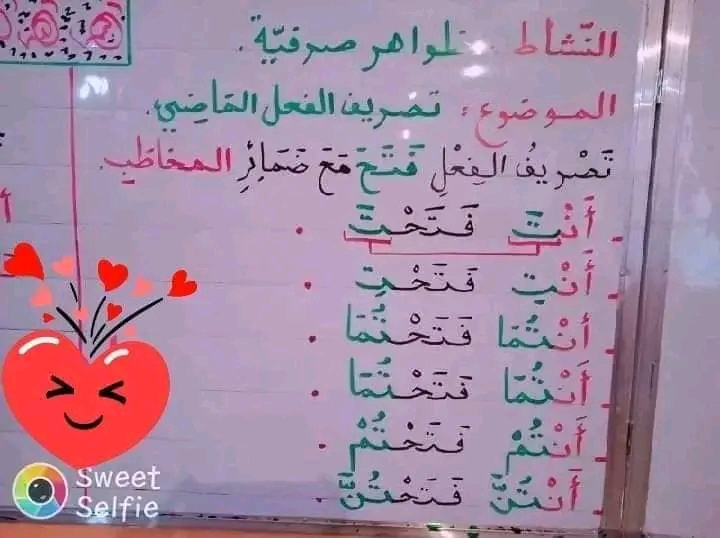 النّشاط : ظواهر صرفيّة.
الموضوع: تصريف الفعل الماضِي.
تَصْرِيفُ الفِعْلِ فَتَحَ مَعَ ضَمَائِرِ المخاطَبِ.
- أَنْتَ فَتَحْتَ.
- أَنْتِ فَتَحْتِ.
- أَنْتُمَا فَتَحْتُمَا.
- أَنْتُمَا فَتَحْتُمَا.
- أَنْتُمْ فَتَحْتُمْ.
- أَنْتُنَّ فَتَحْتُنَّ.
Sweet
Selfie